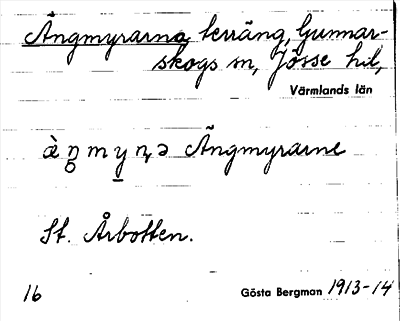 Ängmyrarna, terräng, Gunnar-
skogs sn, Jösse hd,
Värmlands län
Ängmyrarne
St. Årbotten.
16 Gösta Bergman 1913-14